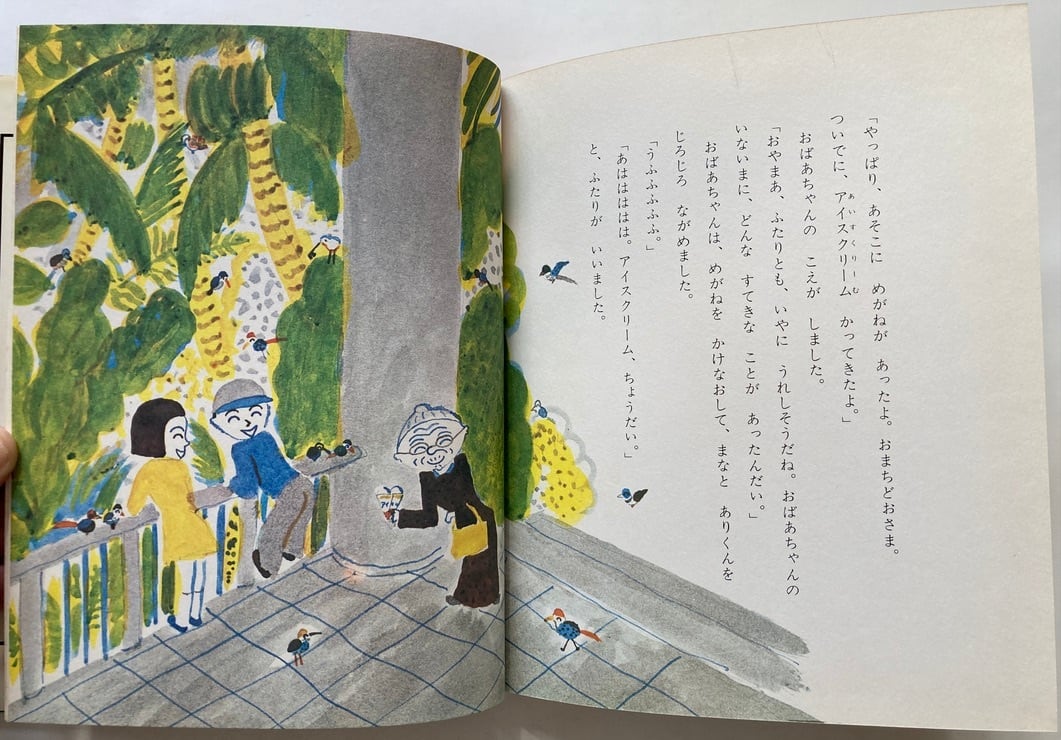 「やっぱり、あそこに　めがねが　あったよ。おまちどおさま。
ついでに、アイスクリーム　かってきたよ。」
あいすくりーむ
おばあちゃんの　こえが　しました。
「おやまあ、ふたりとも、いやに　うれしそうだね。おばあちゃんの
いないまに、どんな　すてきな　ことが　あったんだい。」
おばあちゃんは、めがねを　かけなおして、まなと　ありくんを
じろじろ　ながめました。
「うふふふふふ。」
「あはははははは。アイスクリーム、ちょうだい。」
と、ふたりが　いいました。